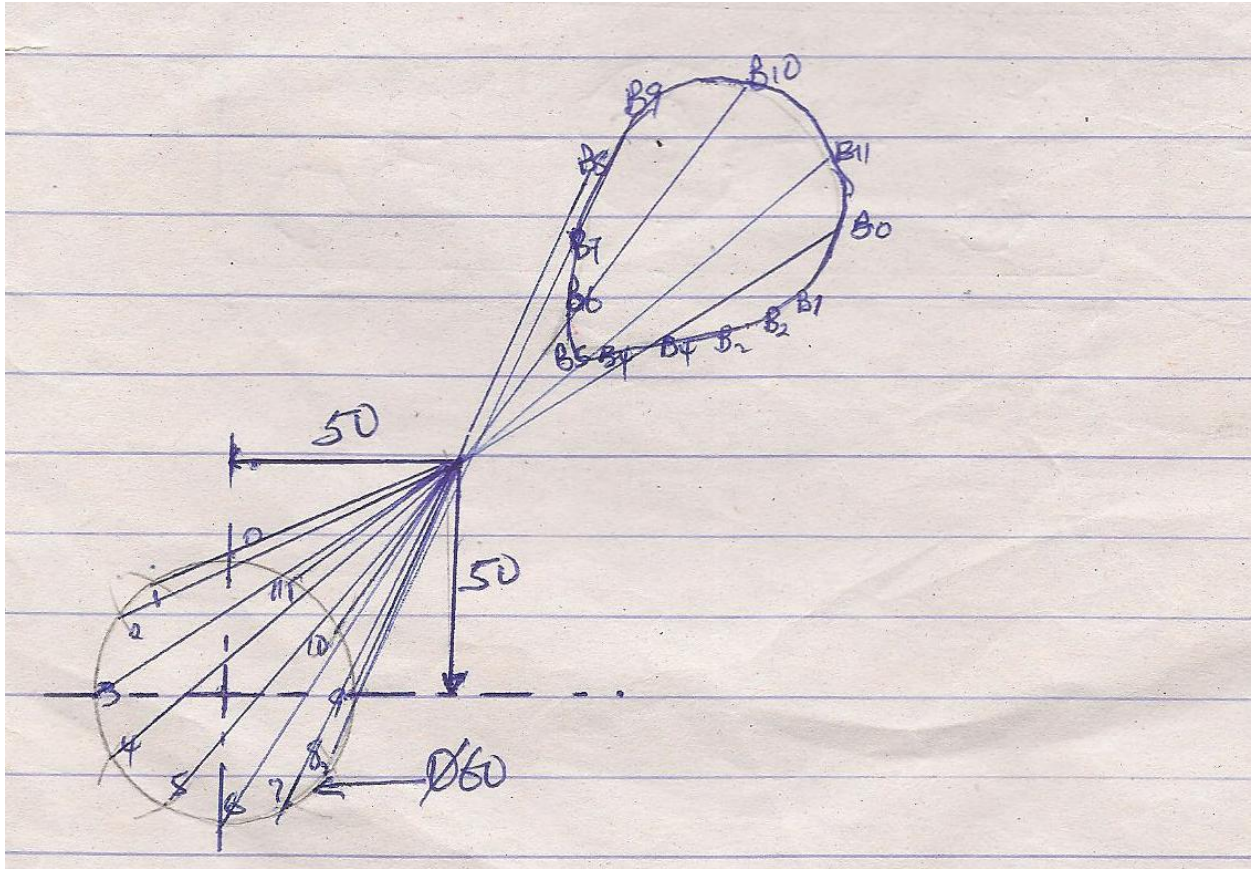 B10
B9
B11
B8
B0
B7
B6
B1
B2
B5 B4 B4 B2
50
0
50
1
11
2
10
3
9
4
8
5
6
7
Ø60